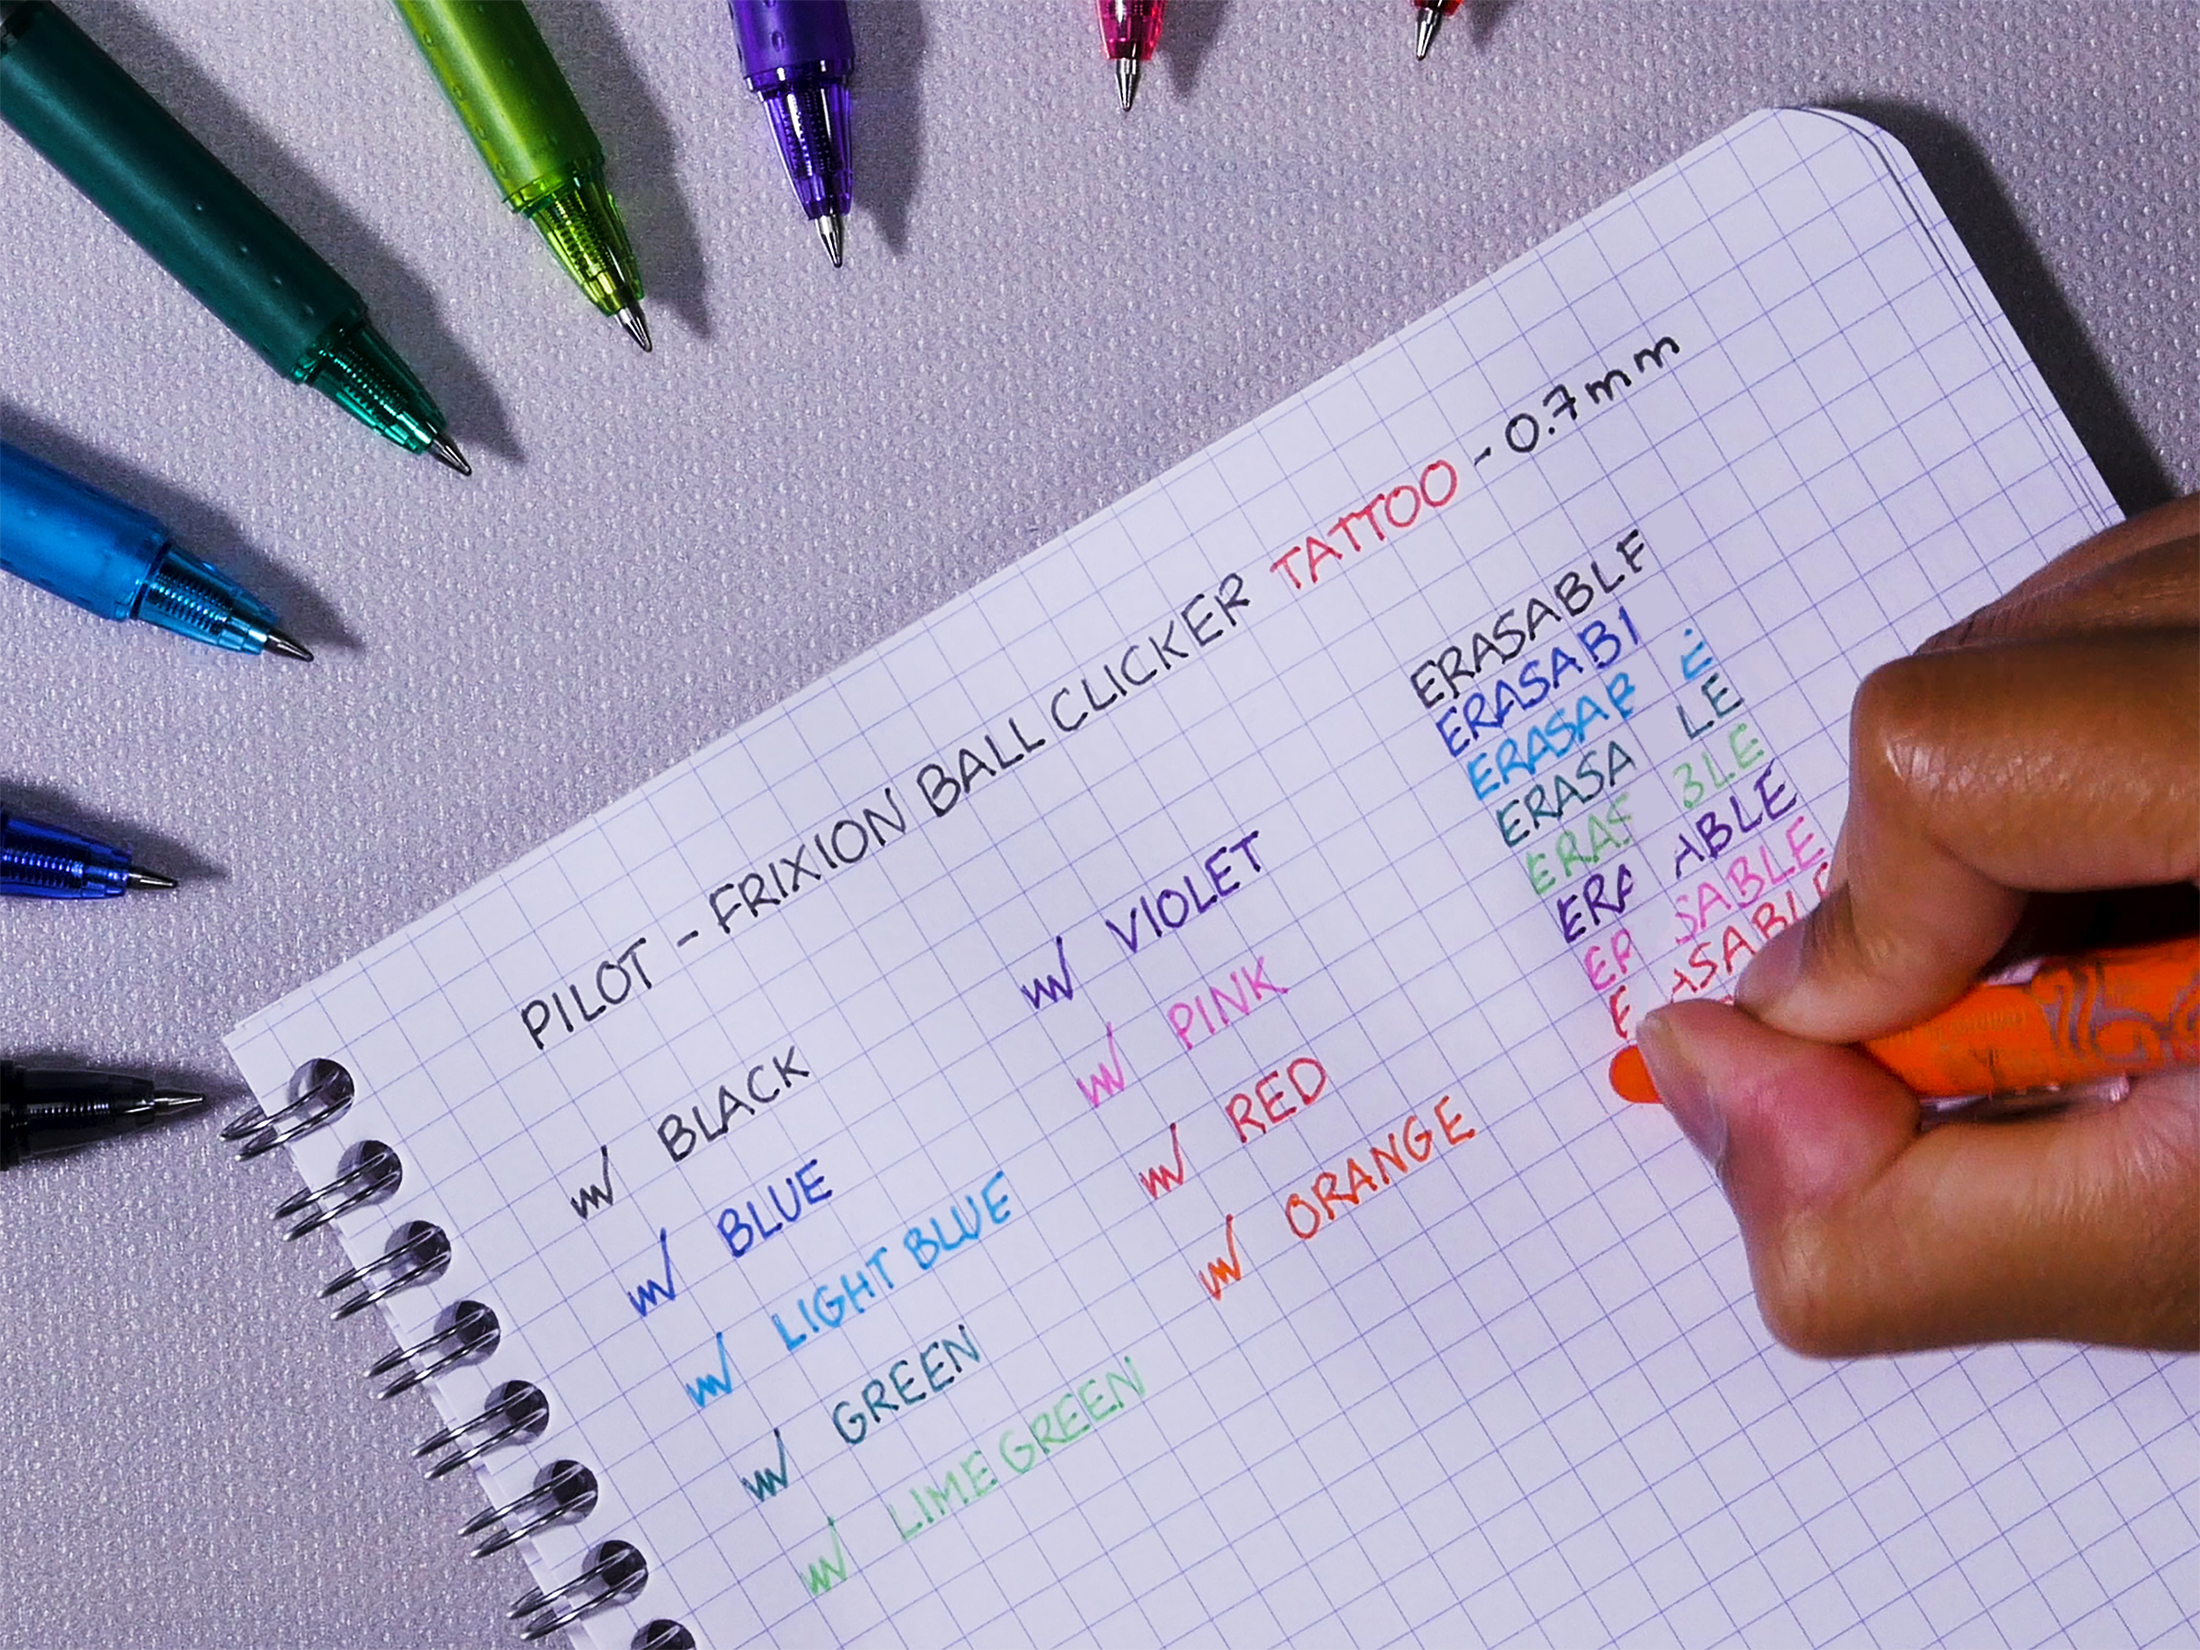 PILOT - FRIXION BALL CLICKER TATTOO - 0.7mm
BLACK
BLUE
LIGHT BLUE
GREEN
LIME GREEN
VIOLET
PINK
RED
ORANGE
ERASABLF
ERASABI
ERASAB E
ERASA LE
ERAS BLE
ERA ABLE
ER SABLE
E ASABL